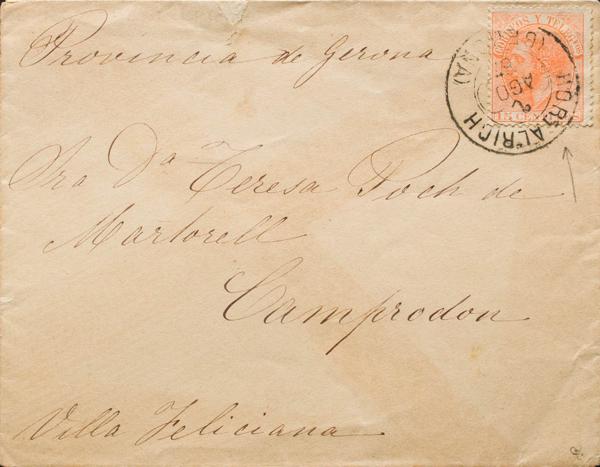 Provincia de Gerona
CORREOS Y TELEGFOS
15 CENT
HORTALRICH
2 AGO
Sra Dª Teresa Poch de
Martorell
Camprodon
Villa Feliciana